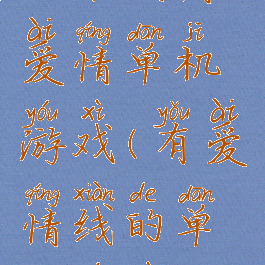 ài qíng dān jī
爱情单机
yóu xì yǒu ài
游戏(有爱
qíng xiàn de dān
情线的单